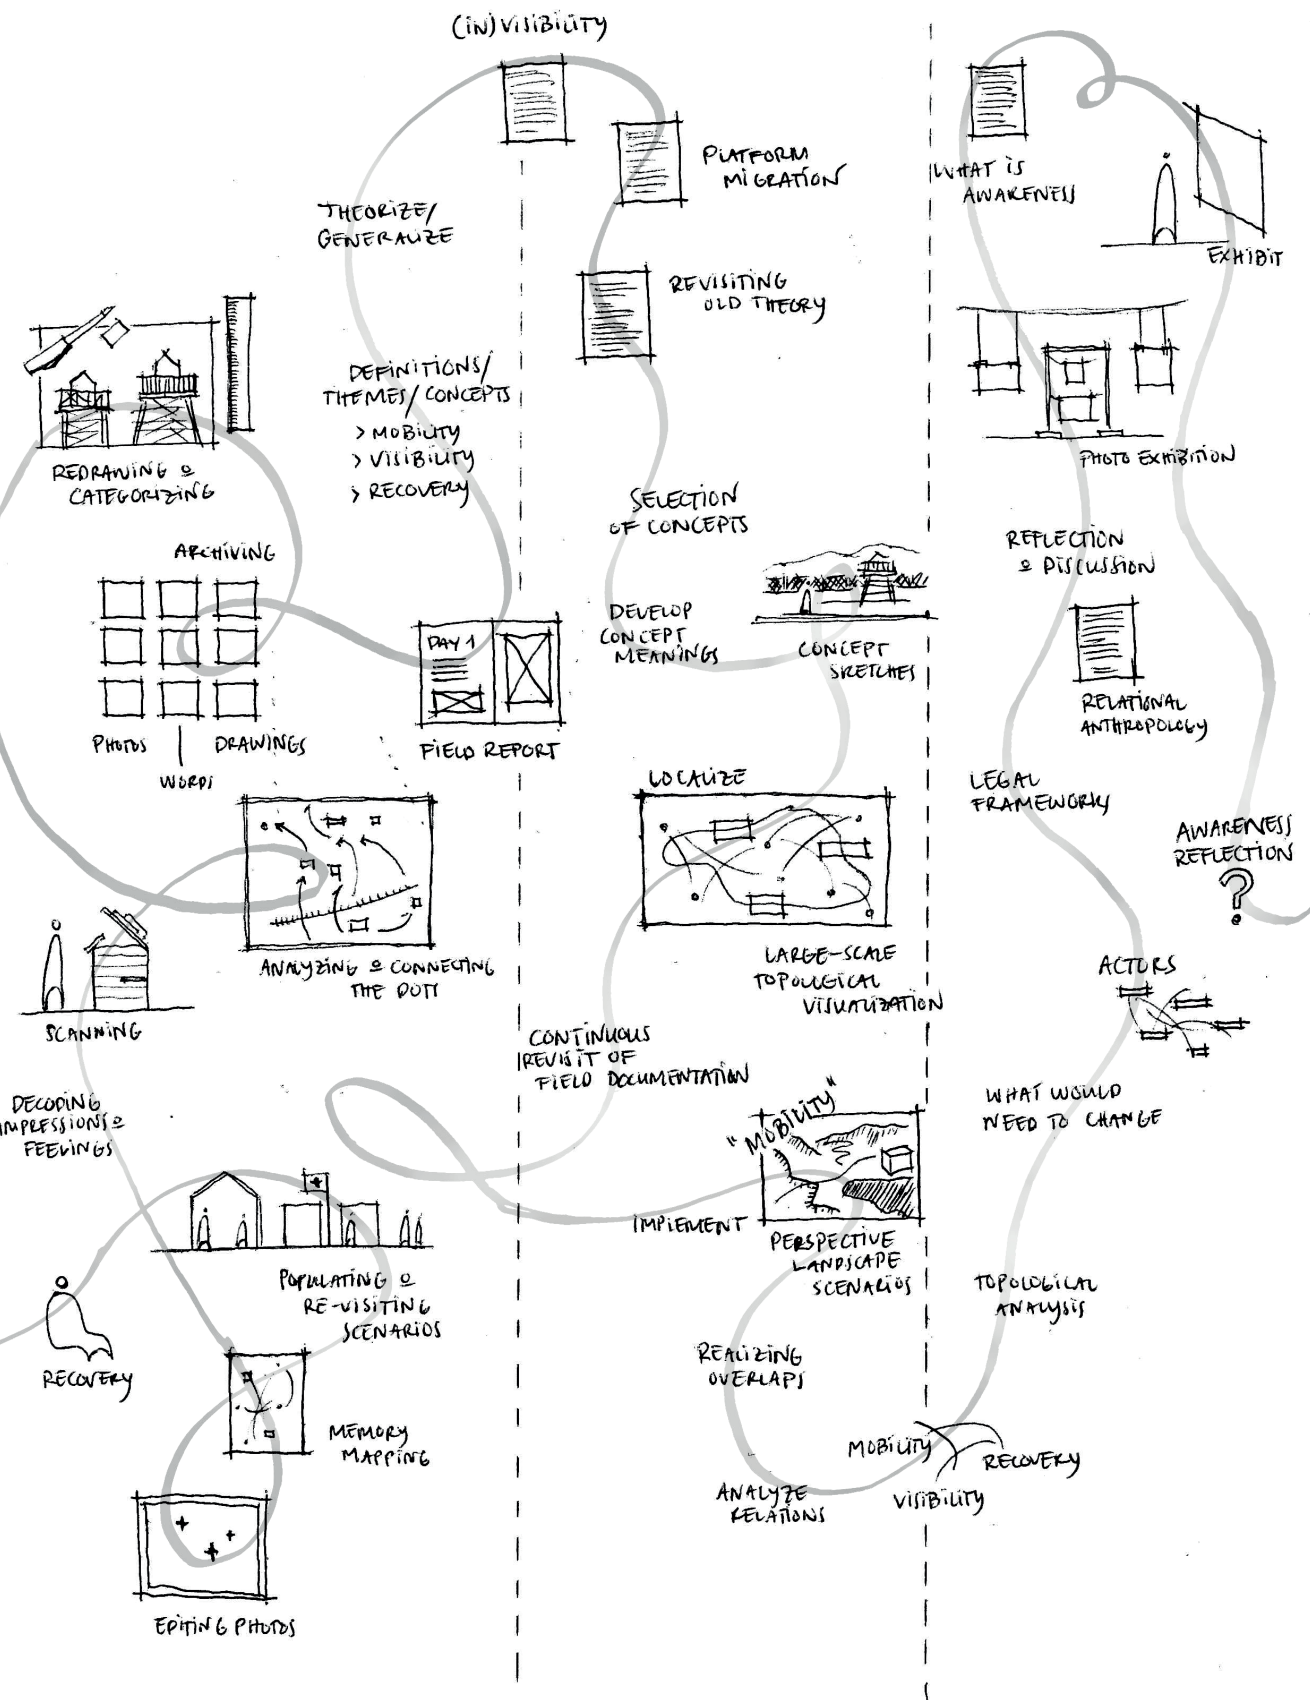 (IN)VISIBILITY
PLATFORM
MIGRATION
THEORIZE/
GENERALIZE
REVISITING
OLD THEORY
DEFINITIONS/
THEMES/CONCEPTS
> MOBILITY
> VISIBILITY
> RECOVERY
REDRAWING &
CATEGORIZING
ARCHIVING
PHOTOS
DRAWINGS
WORDS
DAY 1
FIELD REPORT
ANALYZING & CONNECTING
THE DOTS
SCANNING
DECODING
IMPRESSIONS &
FEELINGS
POPULATING &
RE-VISITING
SCENARIOS
RECOVERY
MEMORY
MAPPING
EDITING PHOTOS
SELECTION
OF CONCEPTS
DEVELOP
CONCEPT
MEANINGS
CONCEPT
SKETCHES
LOCALIZE
LARGE-SCALE
TOPOLOGICAL
VISUALIZATION
CONTINUOUS
REVISIT OF
FIELD DOCUMENTATION
"MOBILITY"
IMPLEMENT
PERSPECTIVE
LANDSCAPE
SCENARIOS
REALIZING
OVERLAPS
ANALYZE
RELATIONS
MOBILITY
RECOVERY
VISIBILITY
WHAT IS
AWARENESS
EXHIBIT
PHOTO EXHIBITION
REFLECTION
& DISCUSSION
RELATIONAL
ANTHROPOLOGY
LEGAL
FRAMEWORKS
AWARENESS
REFLECTION
?
ACTORS
WHAT WOULD
NEED TO CHANGE
TOPOLOGICAL
ANALYSIS